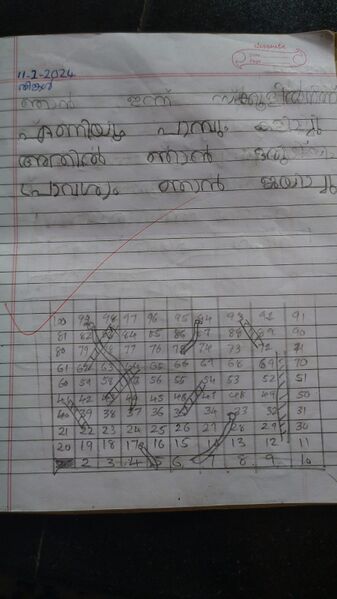 11-2-2024
തിങ്കൾ
ഞാൻ ഇന്ന്
ഏണിയും പാമ്പും കളിച്ചു
അതിൽ ഞാൻ ഒരു
പ്രാവശ്യം ഞാൻ ജയിച്ചു
100 99 98 97 96 95 94 93 92 91
81 82 84 85 86 87 88 89 90
80 79 77 76 74 73 72 71
61 62 63 65 66 67 68 69 70
60 59 58 56 55 54 53 52 51
42 45 46 47 48 49 50
39 38 37 36 34 33 32 31
21 22 23 24 25 26 27 28 29 30
20 19 18 17 16 15 14 13 12 11
2 3 4 5 6 7 8 9 10